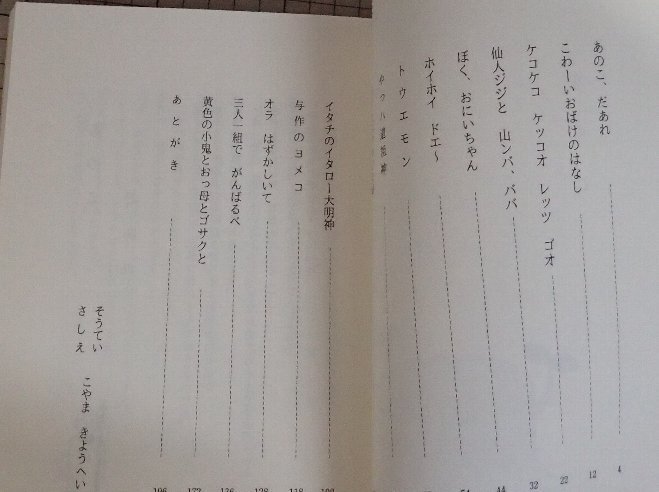 あのこ、だあれ 4
こわーいおばけのはなし 12
ケコケコ ケッコオ レッツ ゴオ 22
仙人ジジと 山ンバ、ババ 32
ぼく、おにいちゃん 44
ホイホイ ドエ〜
トウエモン
イタチのイタロー大明神
与作のヨメコ
オラ はずかしいて
三人一組で がんばるべ
黄色の小鬼とおっ母とゴサクと
あとがき
そうてい
さしえ こやま きようへい